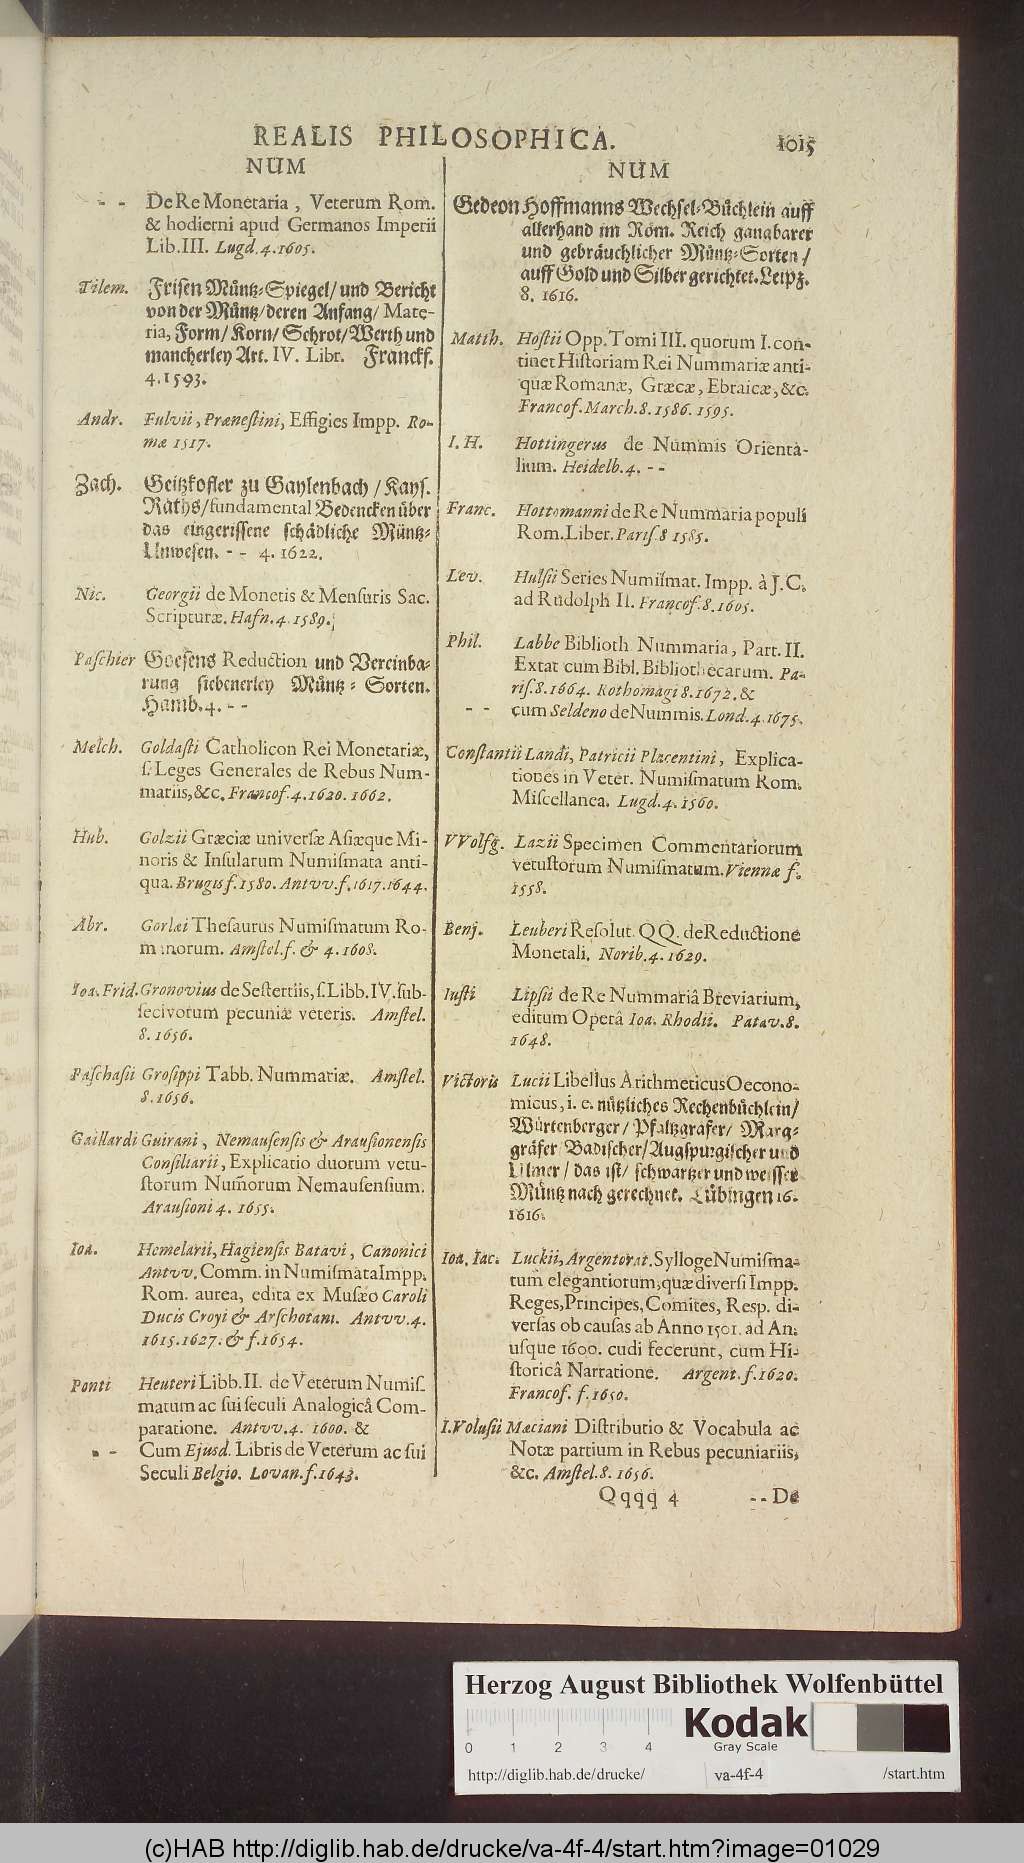 REALIS PHILOSOPHICA. 1015
NUM
- - De Re Monetaria, Veterum Rom.
& hodierni apud Germanos Imperii
Lib. III. Lugd. 4. 1605.
Tilem. Frisen Müntz-Spiegel/ und Bericht
von der Müntz/ deren Anfang/ Mate-
ria, Form/ Korn/ Schrot/ Werth und
mancherley Art. IV. Libr. Franckf.
4. 1593.
Andr. Fulvii, Prænestini, Effigies Impp. Ro-
mæ 1517.
Zach. Geitzkofler zu Gaylenbach / Kays.
Raths/ fundamental Bedencken über
das eingerissene schädliche Müntz-
Unwesen. - - 4. 1622.
Nic. Georgii de Monetis & Mensuris Sac.
Scripturæ. Hafn. 4. 1589.
Paschier Goesens Reduction und Vereinba-
rung siebenerley Müntz-Sorten.
Hamb. 4. - -
Melch. Goldasti Catholicon Rei Monetariæ,
ſ. Leges Generales de Rebus Num-
mariis, &c. Francof. 4. 1620. 1662.
Hub. Golzii Græciæ universæ Asiæque Mi-
noris & Insularum Numiſmata anti-
qua. Brugis f. 1580. Antvv. f. 1617. 1644.
Abr. Gorlæi Thesaurus Numiſmatum Ro-
manorum. Amſtel. f. & 4. 1608.
Ioa. Frid. Gronovius de Sestertiis, ſ. Libb. IV. ſub-
ſecivorum pecuniæ veteris. Amſtel.
8. 1656.
Paſchaſii Groſippi Tabb. Nummariæ. Amſtel.
8. 1656.
Gaillardi Guirani, Nemauſenſis & Arauſionenſis
Conſiliarii, Explicatio duorum vetu-
ſtorum Num̃orum Nemauſenſium.
Arauſioni 4. 1655.
Ioa. Hemelarii, Hagienſis Batavi, Canonici
Antvv. Comm. in Numiſmata Impp.
Rom. aurea, edita ex Muſæo Caroli
Ducis Croyi & Arſchotani. Antvv. 4.
1615. 1627. & f. 1654.
Ponti Heuteri Libb. II. de Veterum Numiſ-
matum ac ſui ſeculi Analogicâ Com-
paratione. Antvv. 4. 1600. &
- - Cum Ejusd. Libris de Veterum ac ſui
Seculi Belgio. Lovan. f. 1643.
NUM
Gedeon Hoffmanns Wechsel-Büchlein auff
allerhand im Röm. Reich gangbarer
und gebräuchlicher Müntz-Sorten /
auff Gold und Silber gerichtet. Leipz.
8. 1616.
Matth. Hoſtii Opp. Tomi III. quorum I. con-
tinet Hiſtoriam Rei Nummariæ anti-
quæ Romanæ, Græcæ, Ebraicæ, &c.
Francof. March. 8. 1586. 1595.
I. H. Hottingerus de Nummis Orienta-
lium. Heidelb. 4. - -
Franc. Hottomanni de Re Nummaria populi
Rom. Liber. Pariſ. 8 1585.
Lev. Hulſii Series Numiſmat. Impp. à J. C.
ad Rudolph II. Francof. 8. 1605.
Phil. Labbe Biblioth Nummaria, Part. II.
Extat cum Bibl. Bibliothecarum. Pa-
riſ. 8. 1664. Rothomagi 8. 1672. &
- - cum Seldeno de Nummis. Lond. 4. 1675.
Conſtantii Landi, Patricii Placentini, Explica-
tiones in Veter. Numiſmatum Rom.
Miſcellanea. Lugd. 4. 1560.
VVolfg. Lazii Specimen Commentariorum
vetuſtorum Numiſmatum. Viennæ f.
1558.
Benj. Leuberi Reſolut. QQ. de Reductione
Monetali. Norib. 4. 1629.
Iuſti Lipſii de Re Nummariâ Breviarium,
editum Operâ Ioa. Rhodii. Patav. 8.
1648.
Victoris Lucii Libellus Arithmeticus Oecono-
micus, i. e. nützliches Rechenbüchlein/
Würtenberger/ Pfaltzgräfer/ Marg-
gräfer Badischer/ Augspurgischer und
Ulmer/ das ist/ schwartzer und weisser
Müntz nach gerechnet. Tübingen 16.
1616.
Ioa. Iac. Luckii, Argentorat. Sylloge Numiſma-
tum elegantiorum, quæ diverſi Impp.
Reges, Principes, Comites, Resp. di-
verſas ob cauſas ab Anno 1501. ad An.
uſque 1600. cudi fecerunt, cum Hi-
ſtoricâ Narratione. Argent. f. 1620.
Francof. f. 1650.
I. Voluſii Mæciani Diſtributio & Vocabula ac
Notæ partium in Rebus pecuniariis,
&c. Amſtel. 8. 1656.
Qqqq 4 - - De
Herzog August Bibliothek Wolfenbüttel
0 1 2 3 4
Kodak
Gray Scale
http://diglib.hab.de/drucke/ va-4f-4 /start.htm
(c)HAB http://diglib.hab.de/drucke/va-4f-4/start.htm?image=01029